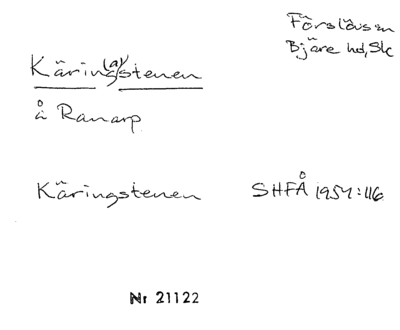 Förslövs sn
Bjäre hd, Sk
Käring(a)stenen
å Ranarp
Käringstenen SHFÅ 1954:116
Nr 21122